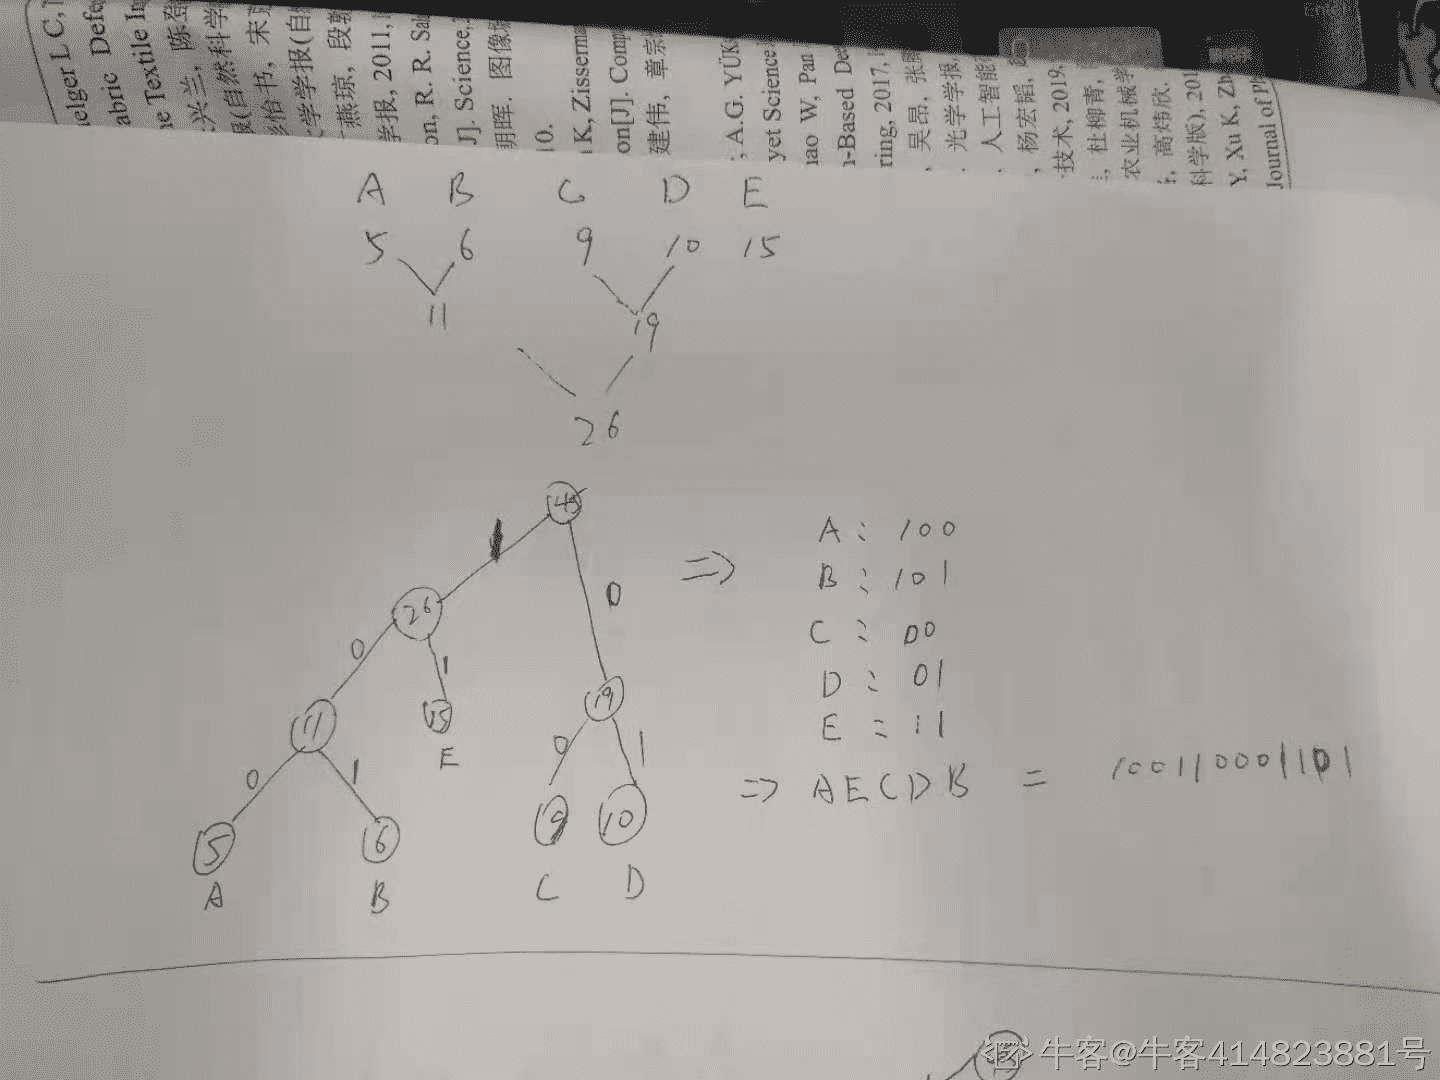 elger L C,
abric Defe
e Textile In
兴兰, 陈登
报(自然科学
彤怡书, 宋
大学学报(自
燕琼, 段
学报, 2011,
on, R. R. Sal
J]. Science,
明晖. 图像
10.
K, Zisserma
on[J]. Comp
建伟, 章宗
; A.G. YÜK
yet Science
hao W, Pan
n-Based De
ring, 2017,
, 吴昂, 张
. 光学学报,
. 人工智能
, 杨宏韬,
技术, 2019,
, 杜柳青,
农业机械学
, 高炜欣.
科学版), 201
Y, Xu K, Zh
Journal of Ph
A B C D E
5 6 9 10 15
11 19
26
45
1 0
26
0 1
11 15 19
E
0 1 0 1
5 6 9 10
A B C D
⇒ A: 100
B: 101
C: 00
D: 01
E: 11
⇒ AECDB = 100110001101
牛客@牛客414823881号